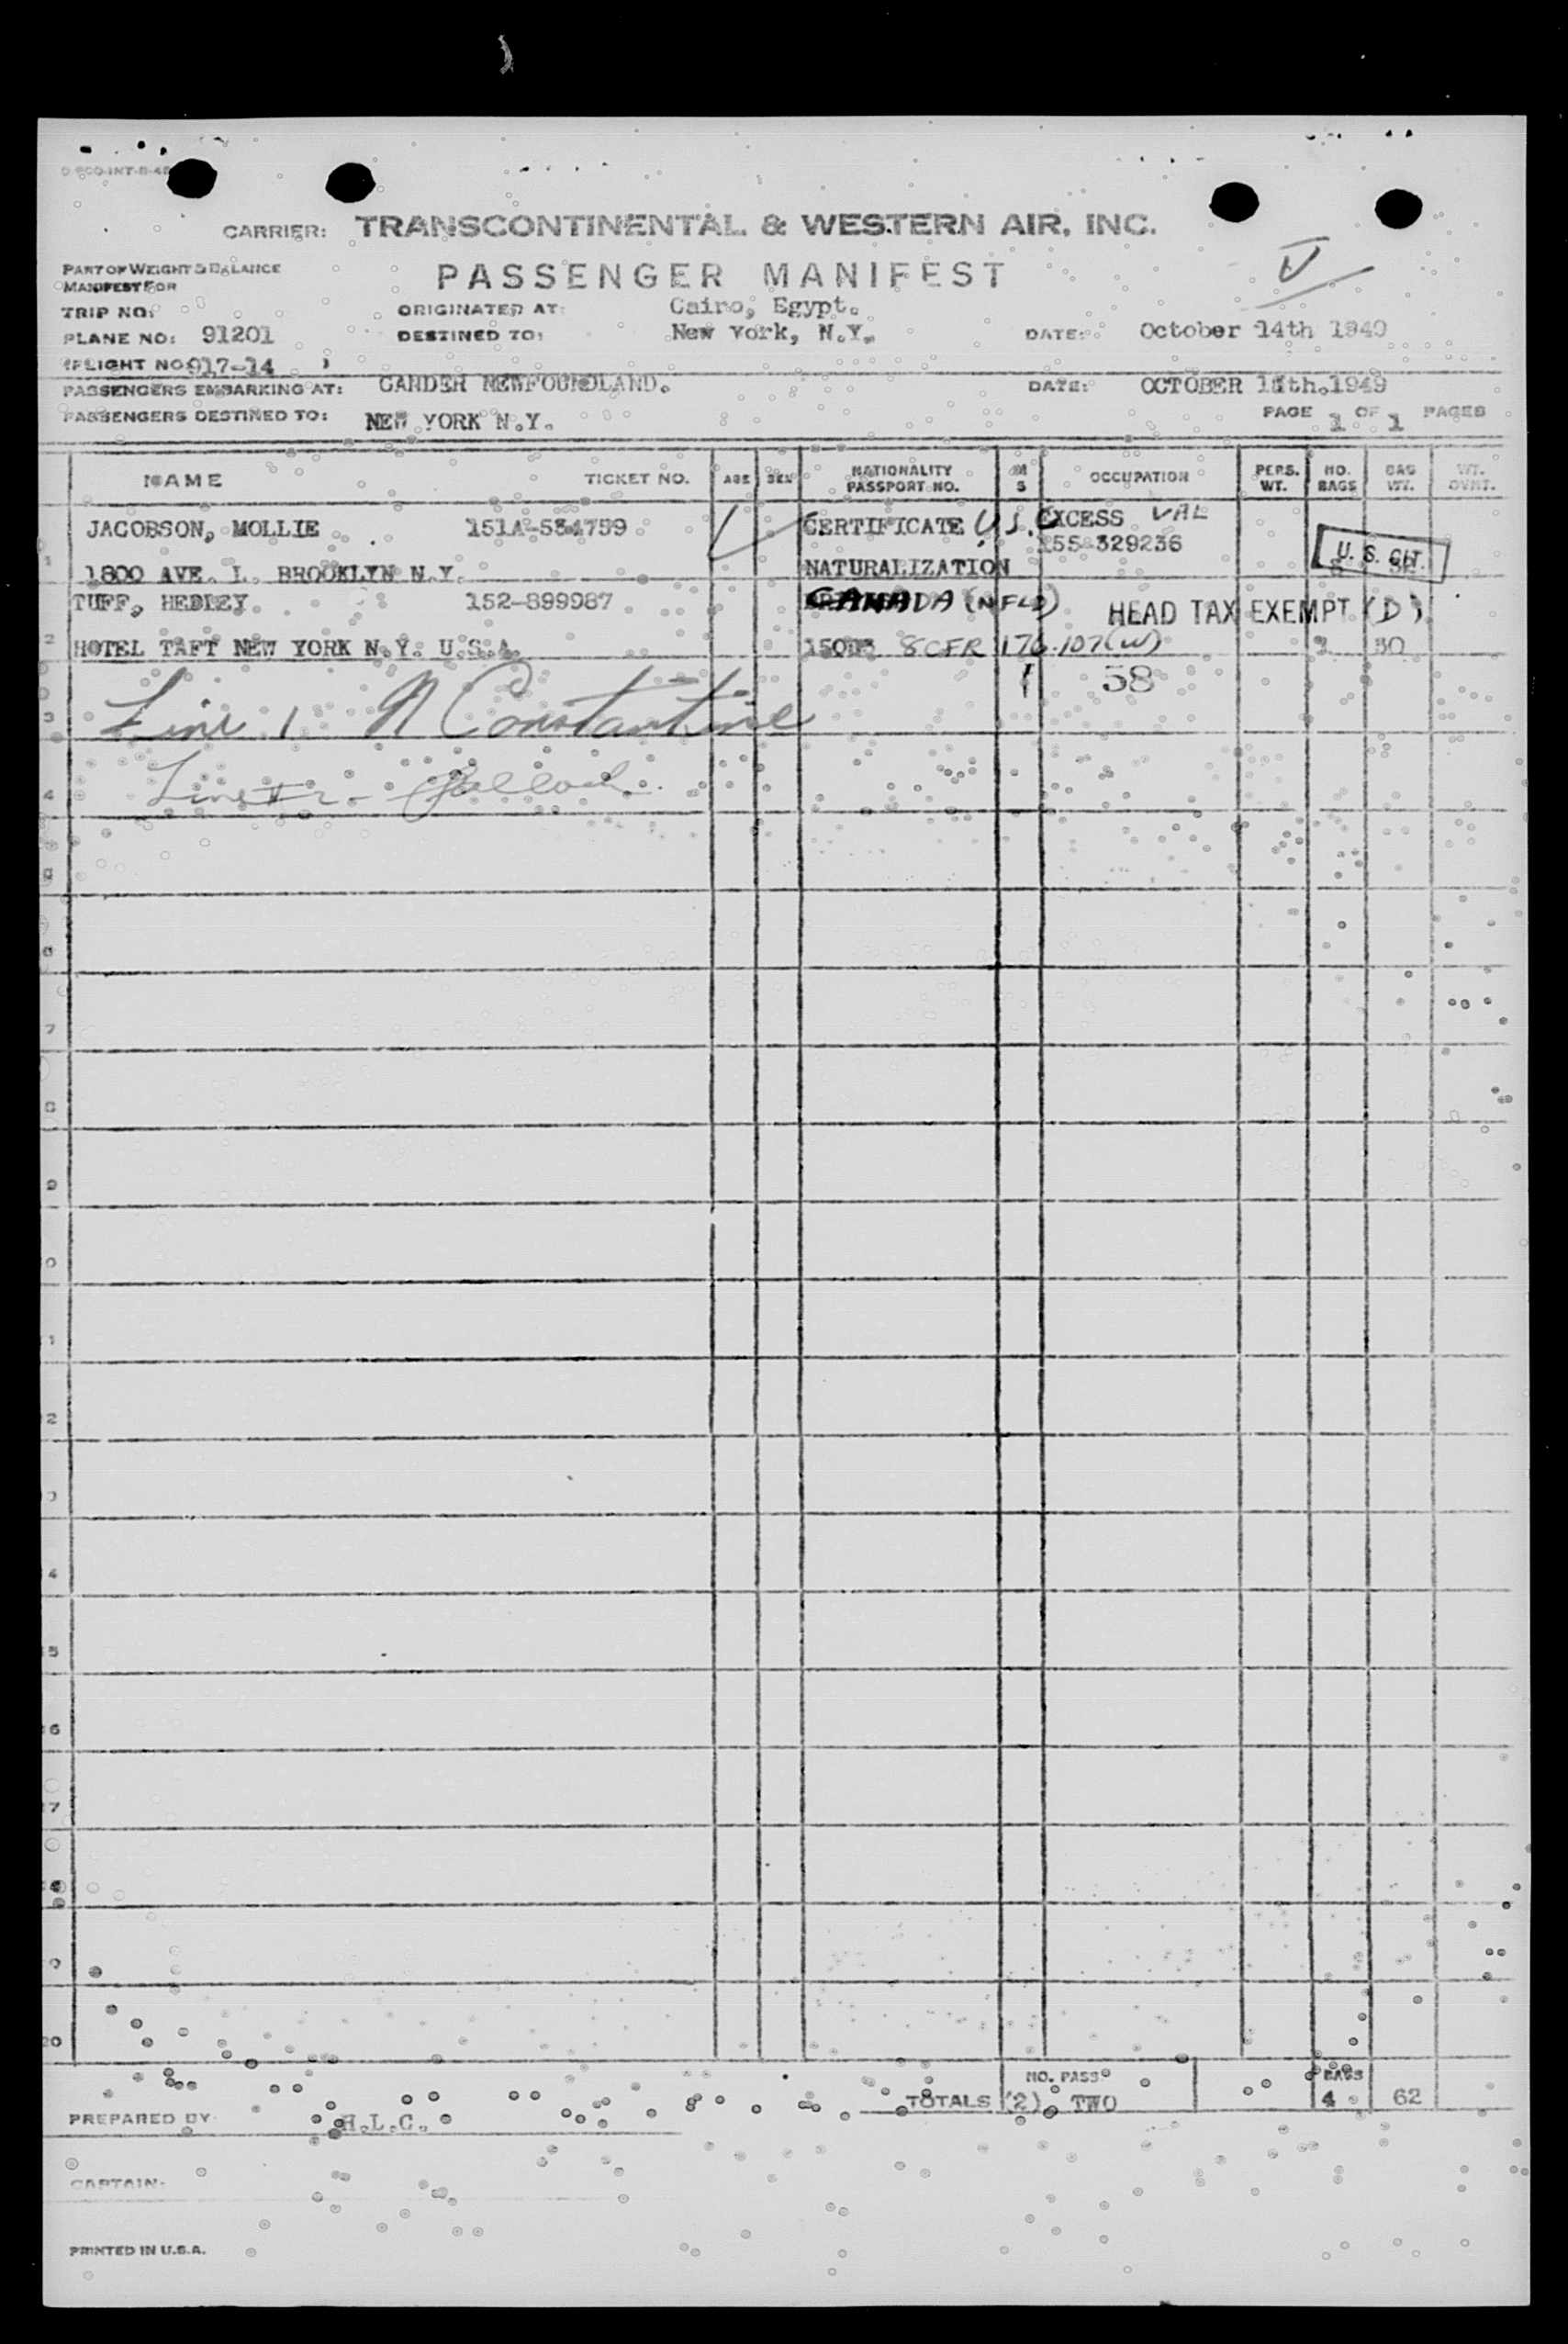 CARRIER: TRANSCONTINENTAL & WESTERN AIR, INC.
PART OF WEIGHT & BALANCE
MANIFEST FOR
PASSENGER MANIFEST
TRIP NO:
ORIGINATED AT: Cairo, Egypt.
PLANE NO: 91201
DESTINED TO: New York, N.Y.
DATE: October 14th 1949
(FLIGHT NO: 917-14 )
PASSENGERS EMBARKING AT: GANDER NEWFOUNDLAND.
DATE: OCTOBER 15th.1949
PASSENGERS DESTINED TO: NEW YORK N.Y.
PAGE 1 OF 1 PAGES
NAME TICKET NO. AGE SEX NATIONALITY PASSPORT NO. M S OCCUPATION PERS. WT. NO. BAGS BAG WT. WT. OVNT.
JACOBSON, MOLLIE 151A-534759 CERTIFICATE U.S.C EXCESS VAL
155-329236
1 1800 AVE. L. BROOKLYN N.Y. NATURALIZATION U. S. CIT.
TUFF, HEDLEY 152-899987 CANADA (NFLD) HEAD TAX EXEMPT (D)
2 HOTEL TAFT NEW YORK N.Y. U.S.A. 8CFR 176.107(W) 2 30
58
3 Line 1 N Constantine
4 Line # 2 -
6
7
8
9
0
1
2
3
4
5
6
7
9
20
NO. PASS BAGS
TOTALS (2) TWO 4 62
PREPARED BY H.L.C.
CAPTAIN-
PRINTED IN U.S.A.